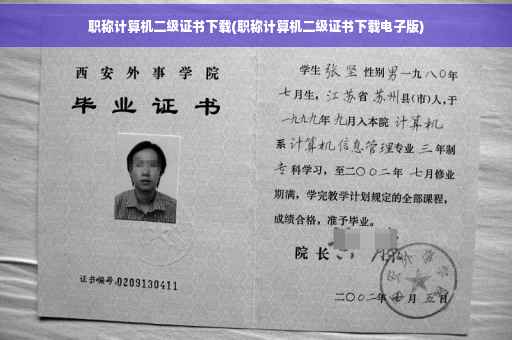 职称计算机二级证书下载(职称计算机二级证书下载电子版)
西安外事学院
毕业证书
证书编号:0209130411
学生 张坚 性别 男 一九八〇年
七月生，江苏省 苏州县(市)人,于
一九九九年 九月入本院 计算机
系 计算机信息管理专业 三 年制
专科学习，至二〇〇二年 七月修业
期满，学完教学计划规定的全部课程，
成绩合格，准予毕业。
院长
二〇〇二年 月 五日